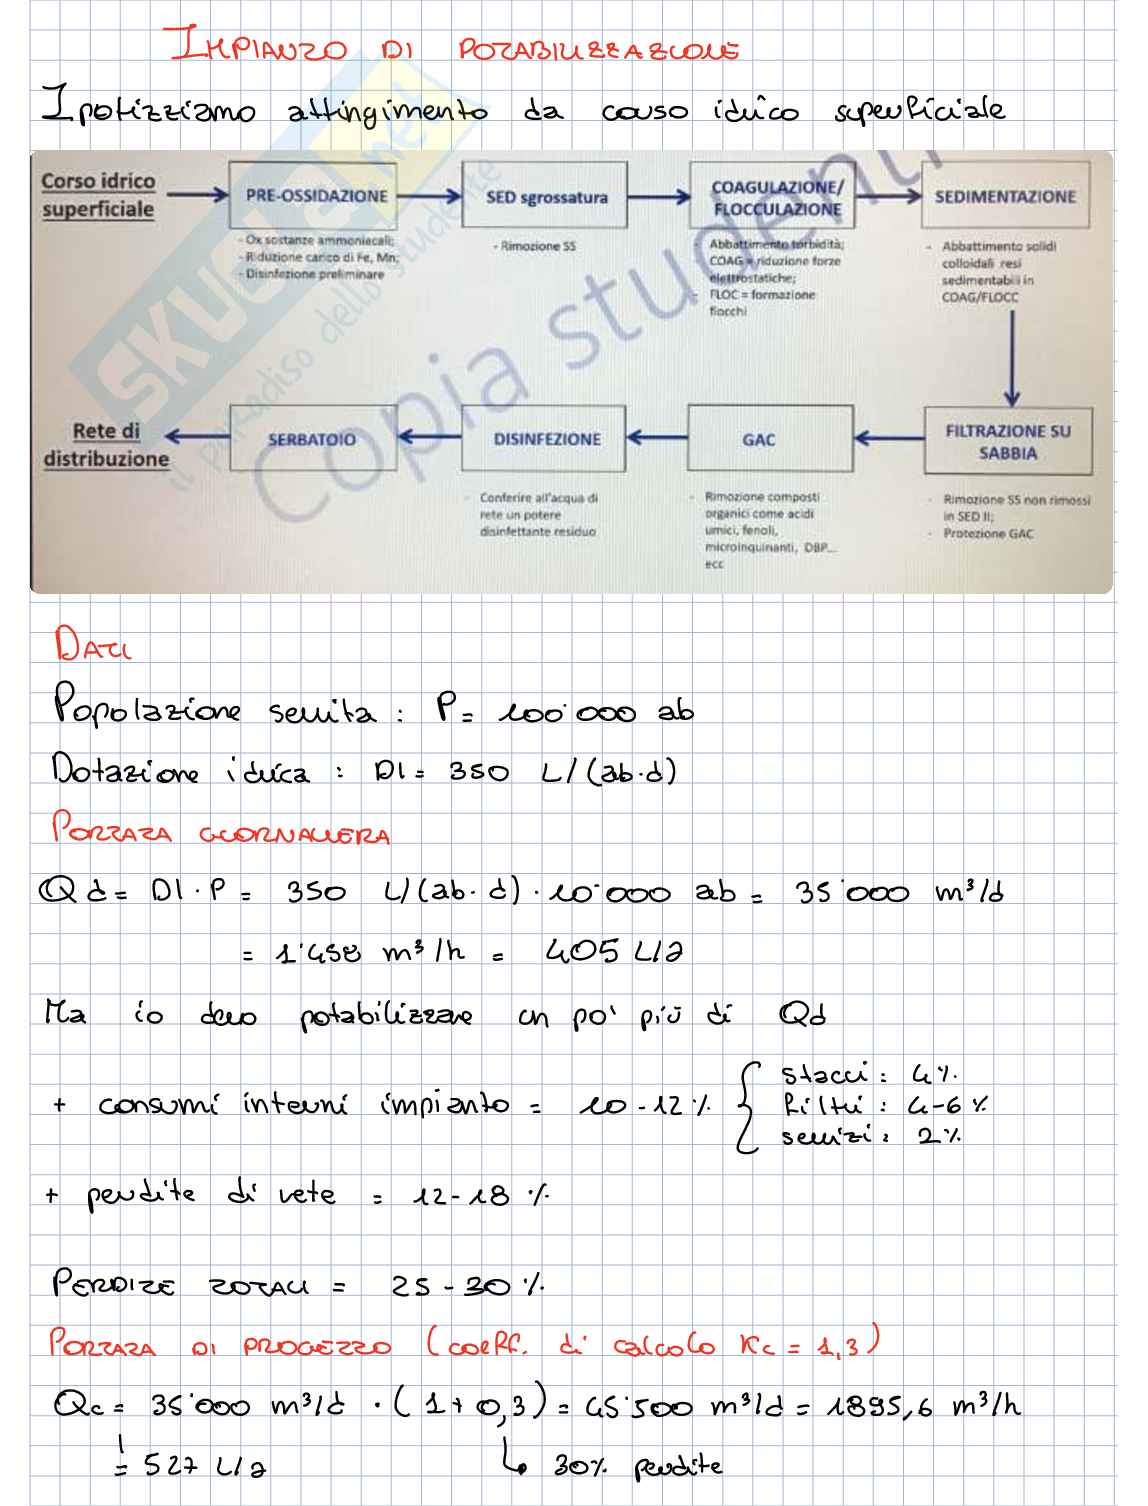 IMPIANTO DI POTABILIZZAZIONE
Ipotizziamo attingimento da corso idrico superficiale
Corso idrico superficiale
PRE-OSSIDAZIONE
- Ox sostanze ammoniacali;
- Riduzione carico di Fe, Mn;
- Disinfezione preliminare
SED sgrossatura
- Rimozione SS
COAGULAZIONE/
FLOCCULAZIONE
- Abbattimento torbidità;
COAG = riduzione forze
elettrostatiche;
- FLOC = formazione
fiocchi
SEDIMENTAZIONE
- Abbattimento solidi
colloidali resi
sedimentabili in
COAG/FLOCC
FILTRAZIONE SU
SABBIA
- Rimozione SS non rimossi
in SED II;
- Protezione GAC
GAC
- Rimozione composti
organici come acidi
umici, fenoli,
microinquinanti, DBP...
ecc
DISINFEZIONE
- Conferire all'acqua di
rete un potere
disinfettante residuo
SERBATOIO
Rete di
distribuzione
SKUOLA.net
il paradiso dello studente
Copia studenti
DATI
Popolazione servita : P= 100'000 ab
Dotazione idrica : DI= 350 L/(ab·d)
PORTATA GIORNALIERA
Qd = DI · P = 350 L/(ab·d) · 10'000 ab = 35'000 m³/d
= 1'458 m³/h = 405 L/s
Ma io devo potabilizzare un po' più di Qd
+ consumi interni impianto = 10-12% { stacci : 4%
filtri : 4-6%
servizi : 2%
+ perdite di rete = 12-18 %
PERDITE TOTALI = 25-30 %
PORTATA DI PROGETTO (coeff. di calcolo Kc = 1,3)
Qc = 35'000 m³/d · (1+0,3) = 45'500 m³/d = 1895,6 m³/h
= 527 L/s ↳ 30% perdite